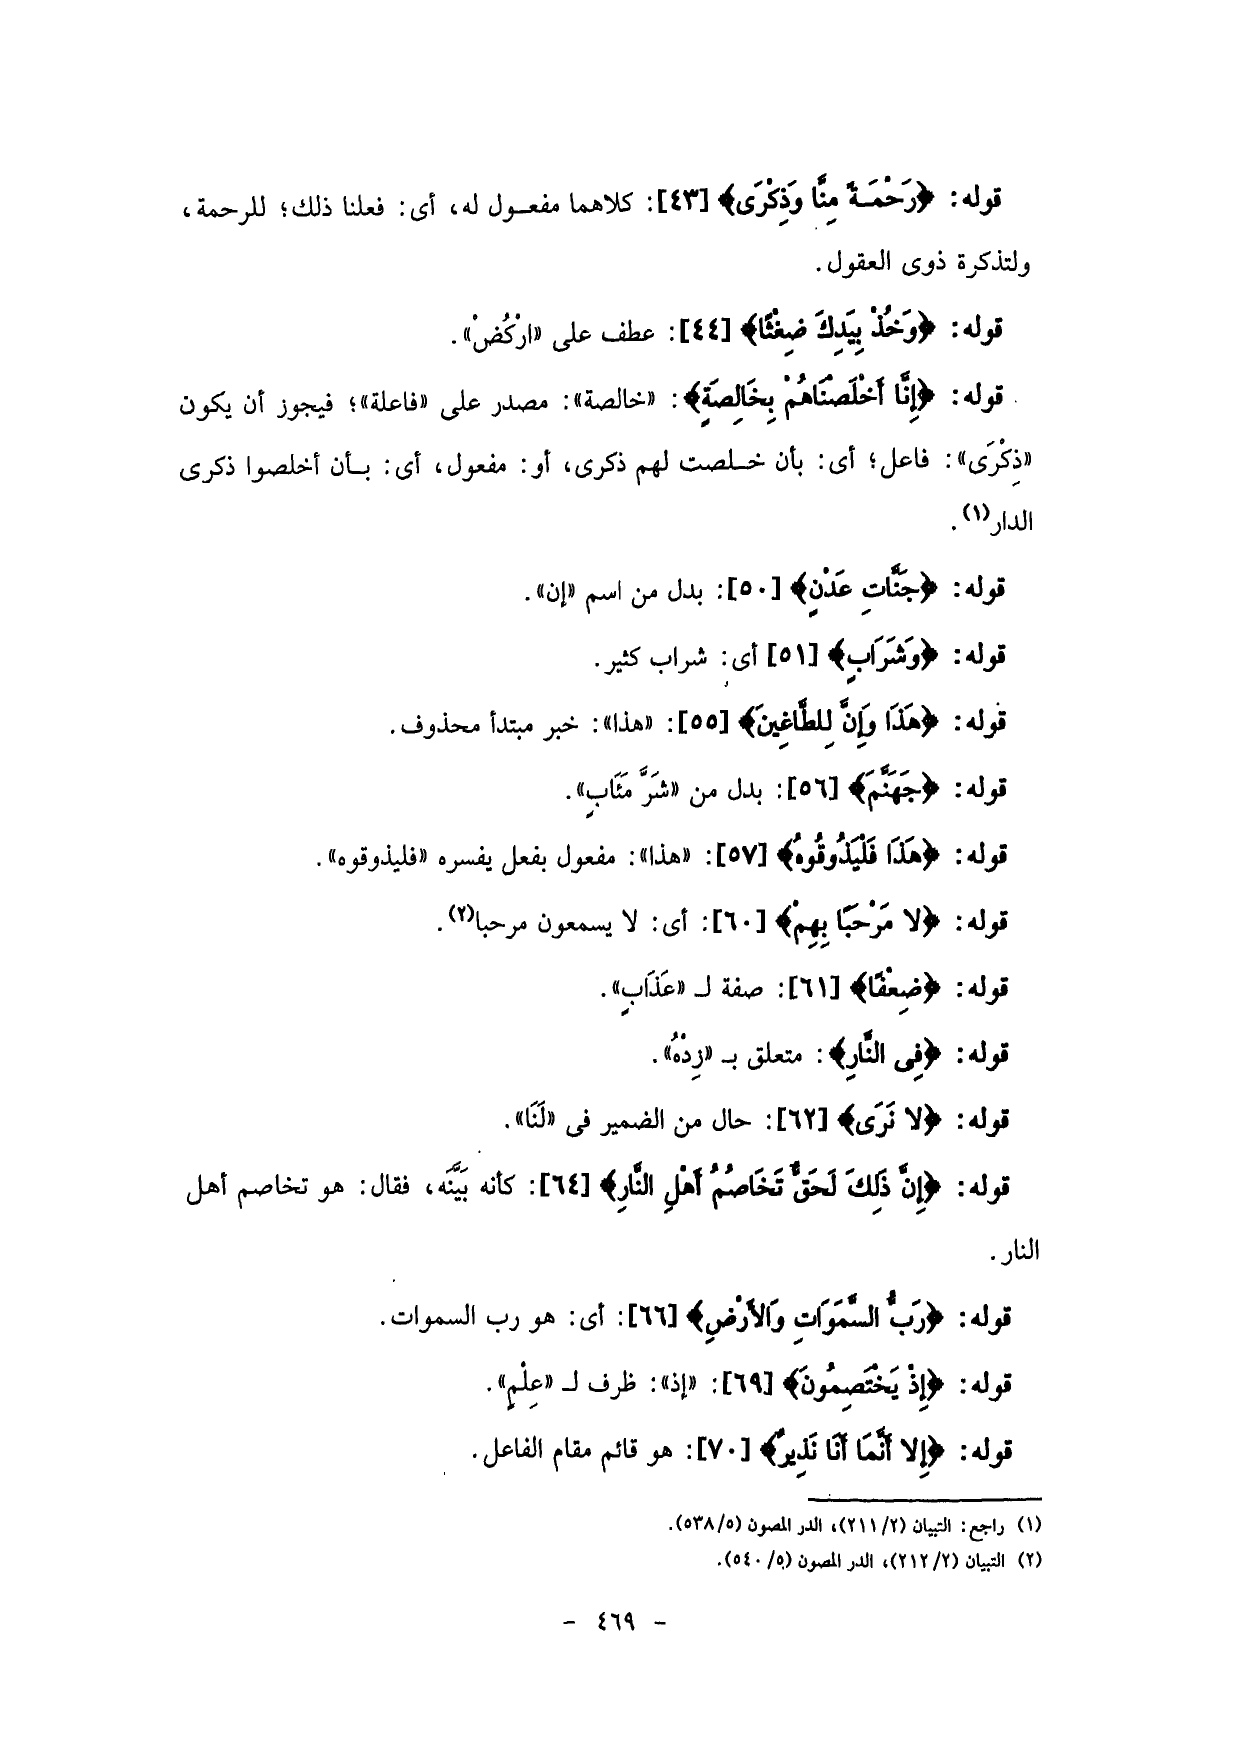 قوله: ﴿رَحْمَةً مِنَّا وَذِكْرَى﴾ [٤٣]: كلاهما مفعول له، أى: فعلنا ذلك؛ للرحمة،
ولتذكرة ذوى العقول.
قوله: ﴿وَخُذْ بِيَدِكَ ضِغْثًا﴾ [٤٤]: عطف على «ارْكُضْ».
قوله: ﴿إِنَّا أَخْلَصْنَاهُمْ بِخَالِصَةٍ﴾: «خالصة»: مصدر على «فاعلة»؛ فيجوز أن يكون
«ذِكْرَى»: فاعل؛ أى: بأن خلصت لهم ذكرى، أو: مفعول، أى: بأن أخلصوا ذكرى
الدار(١).
قوله: ﴿جَنَّاتِ عَدْنٍ﴾ [٥٠]: بدل من اسم «إن».
قوله: ﴿وَشَرَابٍ﴾ [٥١] أى: شراب كثير.
قوله: ﴿هَذَا وَإِنَّ لِلطَّاغِينَ﴾ [٥٥]: «هذا»: خبر مبتدأ محذوف.
قوله: ﴿جَهَنَّمَ﴾ [٥٦]: بدل من «شَرَّ مَئَابٍ».
قوله: ﴿هَذَا فَلْيَذُوقُوهُ﴾ [٥٧]: «هذا»: مفعول بفعل يفسره «فليذوقوه».
قوله: ﴿لا مَرْحَبًا بِهِمْ﴾ [٦٠]: أى: لا يسمعون مرحبا(٢).
قوله: ﴿ضِعْفًا﴾ [٦١]: صفة لـ «عَذَابٍ».
قوله: ﴿فِى النَّارِ﴾: متعلق بـ «زِدْهُ».
قوله: ﴿لا نَرَى﴾ [٦٢]: حال من الضمير فى «لَنَا».
قوله: ﴿إِنَّ ذَلِكَ لَحَقٌّ تَخَاصُمُ أَهْلِ النَّارِ﴾ [٦٤]: كأنه بَيَّنَه، فقال: هو تخاصم أهل
النار.
قوله: ﴿رَبُّ السَّمَوَاتِ وَالأَرْضِ﴾ [٦٦]: أى: هو رب السموات.
قوله: ﴿إِذْ يَخْتَصِمُونَ﴾ [٦٩]: «إذ»: ظرف لـ «عِلْمٍ».
قوله: ﴿إِلا أَنَّمَا أَنَا نَذِيرٌ﴾ [٧٠]: هو قائم مقام الفاعل.
(١) راجع: التبيان (٢/٢١١)، الدر المصون (٥/٥٣٨).
(٢) التبيان (٢/٢١٢)، الدر المصون (٥/٥٤٠).
- ٤٦٩ -